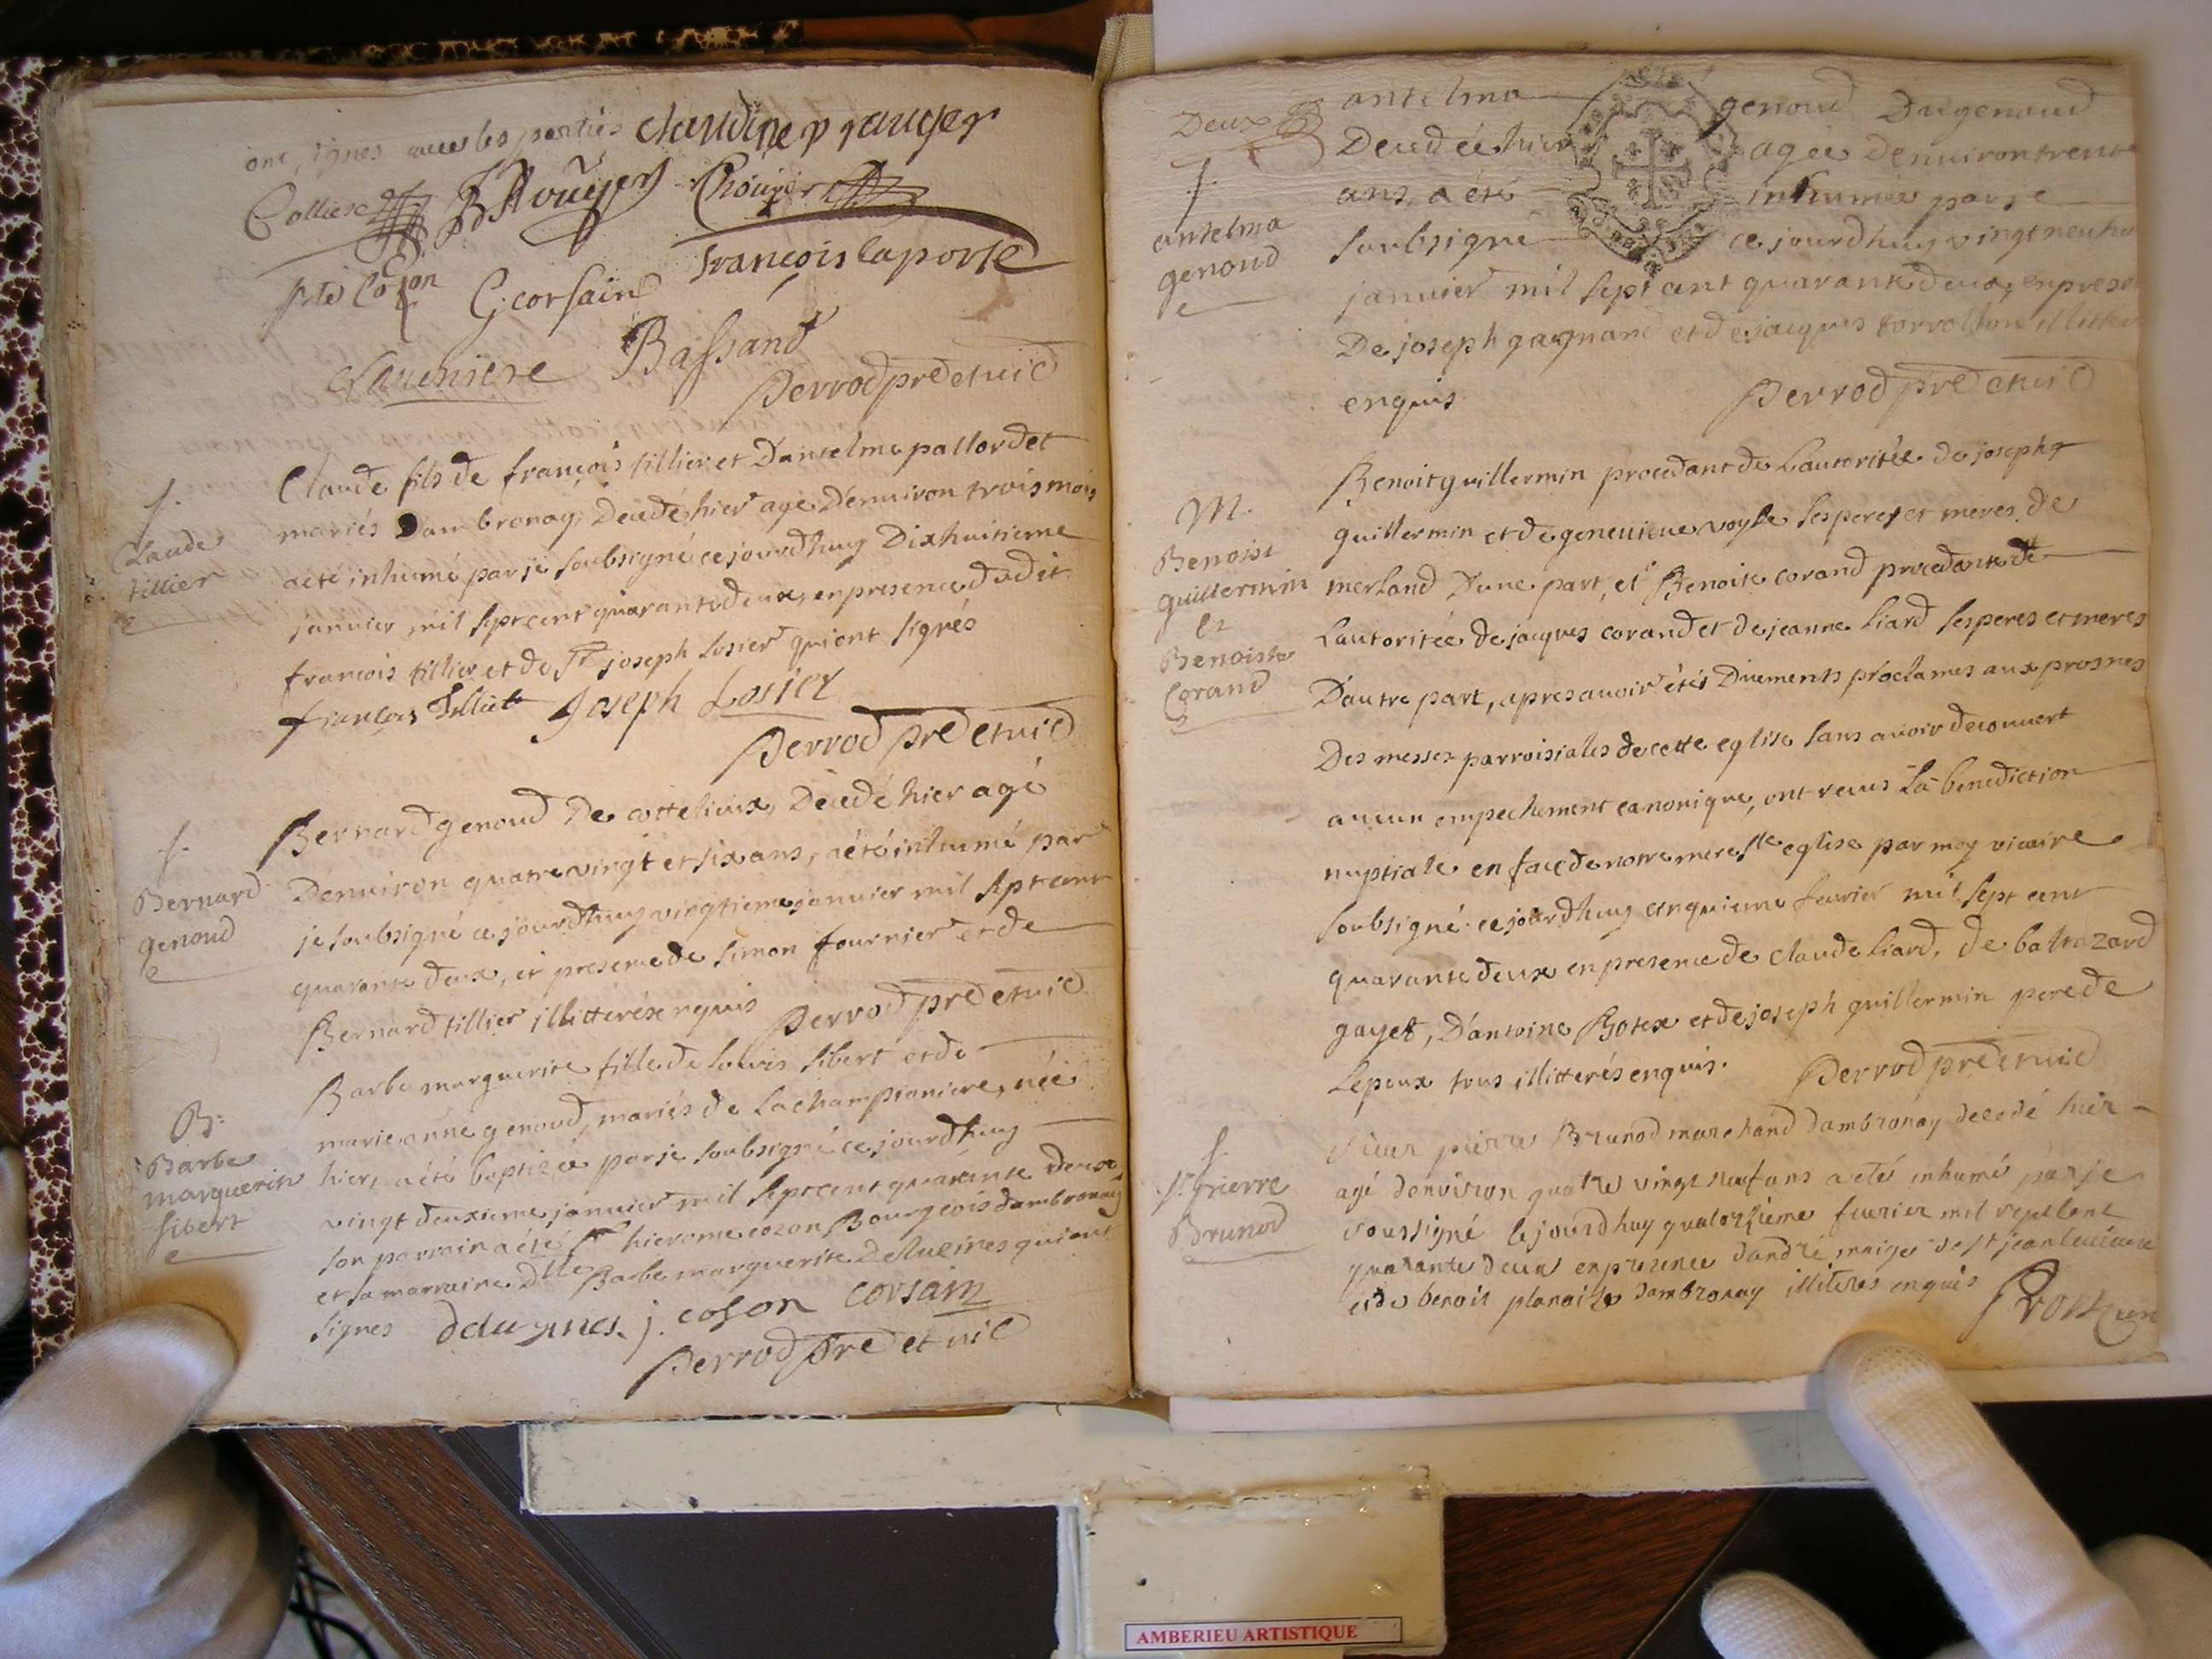 ont signes avec les parties claudine p rauger
Collier B Rouyer Chouyer
pte Cozon G: corsain francois laporte
Laueniere Bassand
Perrod pre et vic
f.
Claude
tillier
Claude fils de françois tillier et Dantelme pallordet
mariés Dambronay, Decedé hier agé D'environ trois mois
a été inhumé par je soubsigné ce jourdhuy Dixhuitieme
janvier mil sept cent quarante deux, en presence dudit
francois tillier et de Sr joseph Losier qui ont signés
françois Tilliet Joseph Losier
Perrod pre et vic
f.
Bernard
genoud
Bernard genoud De cottelieux, Decedé hier agé
D'environ quatre vingt et six ans, a été inhumé par
je soubsigné ce jourdhuy vingtieme janvier mil sept cent
quarante deux, et presence de simon fournier et de
Bernard tillier illitterés enquis Perrod pre et vic
B:
Barbe
marguerite
sibert
Barbe marguerite fille de Louis sibert et de
marie anne genoud, mariés de Lachampioniere, née
hier, a été baptisée par je soubsigné ce jourdhuy
vingt deuxieme janvier mil sept cent quarante deux,
son parrain a été Sr hierome cozon Bourgeois dambronay
et sa marraine Dlle Barbe marguerite Delueines qui ont
signes j. coson corsain
Perrod Pre et vic
Deux
f.
antelma
genoud
antelma genoud Dugenoud
Decedée hier agée Denviron trente
ans, a été inhumée par je
soubsigné ce jourdhuy vingt neuf
janvier mil sept cent quarante deux, en prese
De joseph gagnand et de jacques torrollion illitter
enquis Perrod pre et vic
M.
Benoist
guillermin
et
Benoiste
Corand
Benoit guillermin procedant de Lautoritée de joseph
guillermin et de genevieve voyle ses peres et meres de
merland D'une part, et Benoite corand procedante de
Lautoritée de jacques corand et de jeanne Liard ses peres et meres
D'autre part, apres avoir étés Düements proclames aux prosnes
Des messes parroisiales de cette eglise sans avoir decouvert
aucun empechement canonique, ont receus La benediction
nuptiale en face de notre mere Ste eglise par moy vicaire
soubsigné ce jourdhuy cinquieme fevrier mil sept cent
quarante deux en presence de claude Liard, de baltazard
gayet, D'antoine Botex et de joseph guillermin pere de
Lepoux tous illitterés enquis. Perrod pre et vic
f.
Sr pierre
Brunod
Sieur pierre Brunod marchand dambronay decedé hier
agé denviron quatre vingt neuf ans a eté inhumé par je
soussigné le jourdhuy quatorzieme feurier mil sept cent
quarante deux en presence dandré
et de benoit dambronay illiteres enquis